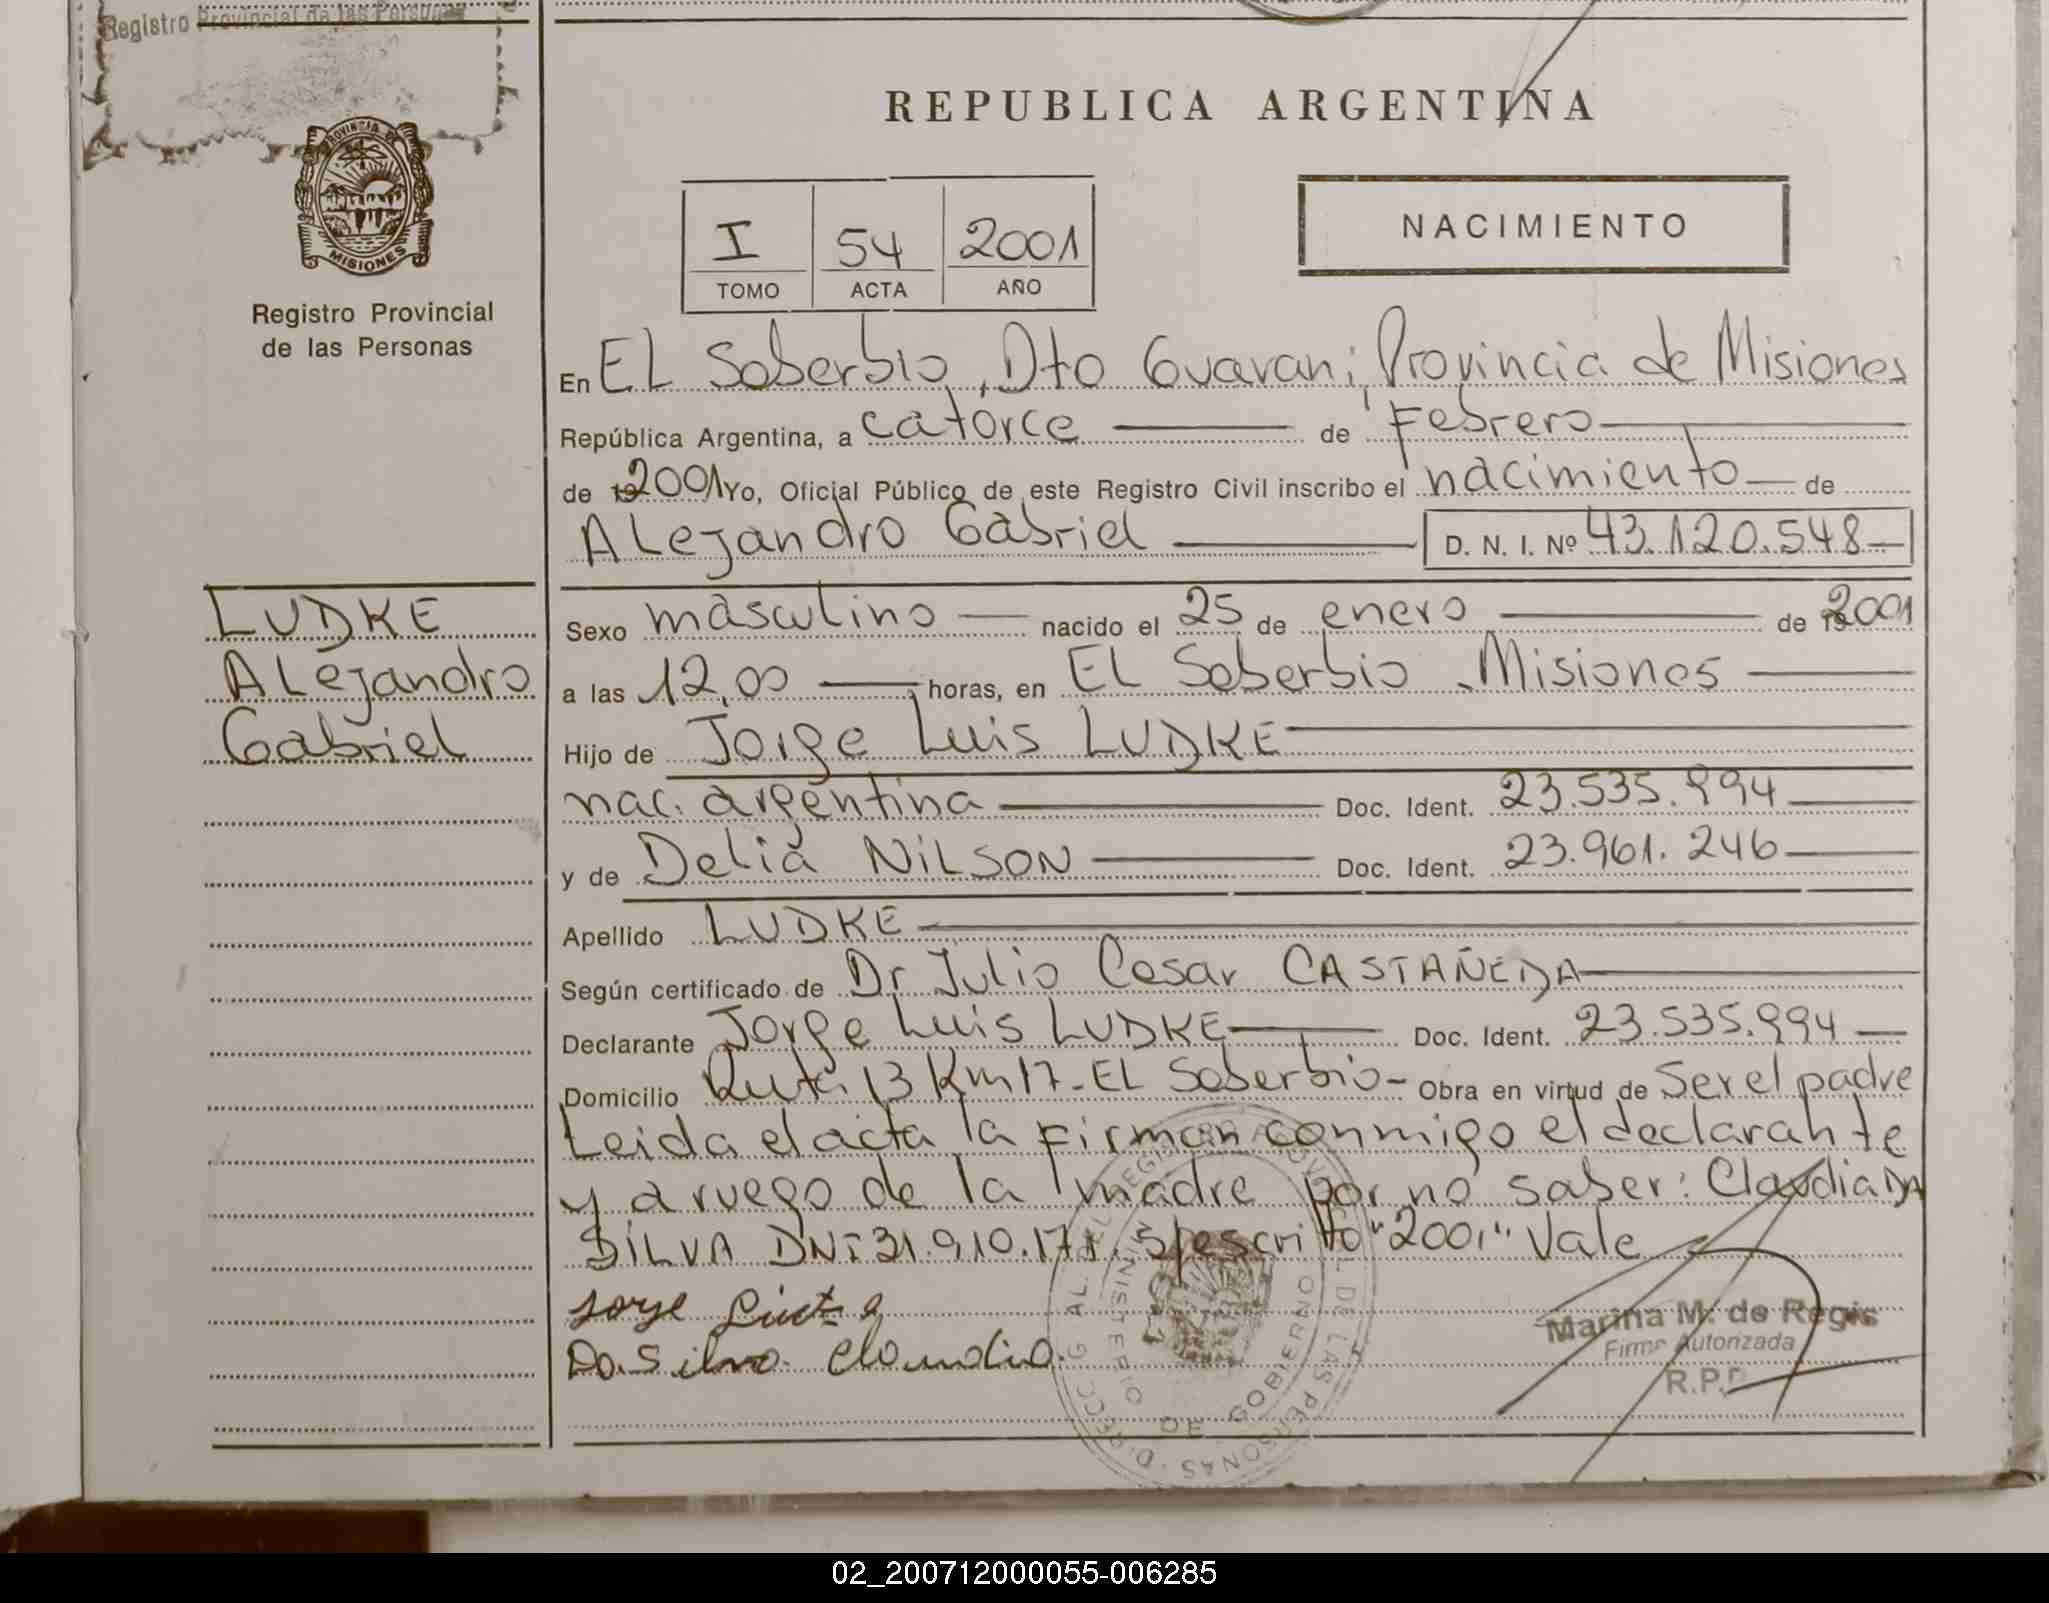 Registro Provincial de las Personas
PROVINCIA DE
MISIONES
Registro Provincial
de las Personas
REPUBLICA ARGENTINA
I 54 2001
TOMO ACTA AÑO
NACIMIENTO
En EL Soberbio, Dto Guarani, Provincia de Misiones
República Argentina, a catorce de Febrero
de 19 2001 Yo, Oficial Público de este Registro Civil inscribo el nacimiento de
Alejandro Gabriel D. N. I. Nº 43.120.548
LUDKE
Alejandro
Gabriel
Sexo masculino nacido el 25 de enero de 19 2001
a las 12,00 horas, en EL Soberbio, Misiones
Hijo de Jorge Luis LUDKE
nac. argentina Doc. Ident. 23.535.994
y de Delia NILSON Doc. Ident. 23.961.246
Apellido LUDKE
Según certificado de Dr Julio Cesar CASTAÑEDA
Declarante Jorge Luis LUDKE Doc. Ident. 23.535.994
Domicilio Ruta 13 Km 17 - EL Soberbio - Obra en virtud de ser el padre
Leida el acta la firman conmigo el declarante
y a ruego de la madre por no saber: Claudia DA
SILVA DNI 31.910.171. s/escrito "2001" Vale
Jorge
Da Silva Claudia
Marina M. de Regis
Firma Autorizada
R.P.P.
MINISTERIO DE GOBIERNO
02_200712000055-006285